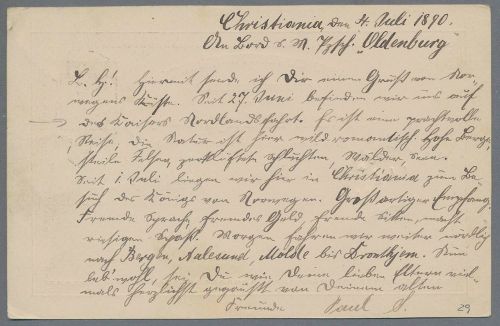 Christiania, den 4. Juli 1890.
An Bord S. M. Pzsch. "Oldenburg"
L. H! Hiermit sende ich Dir einen Gruß von Nor-
wegens Küste. Seit 27. Juni befinden wir uns auf
des Kaisers Nordlandsfahrt. Es ist eine prachtvolle
Reise, die Natur ist hier wild romantisch. Hohe Berge,
steile Felsen, zerklüftete Schluchten, Wälder, Seen.
Seit 1 Juli liegen wir hier in Christiania zum Be-
such des Königs von Norwegen. Großartiger Empfang.
Fremde Sprach, fremdes Geld, fremde Sitten, macht
riesigen Spaß. Morgen fahren wir weiter nördlich
nach Bergen, Aalesund, Molde bis Dronthjem. Nun
leb' wohl, sei Du wie Deine lieben Eltern viel-
mals herzlichst gegrüßt von Deinem alten
Freunde Paul S.
29